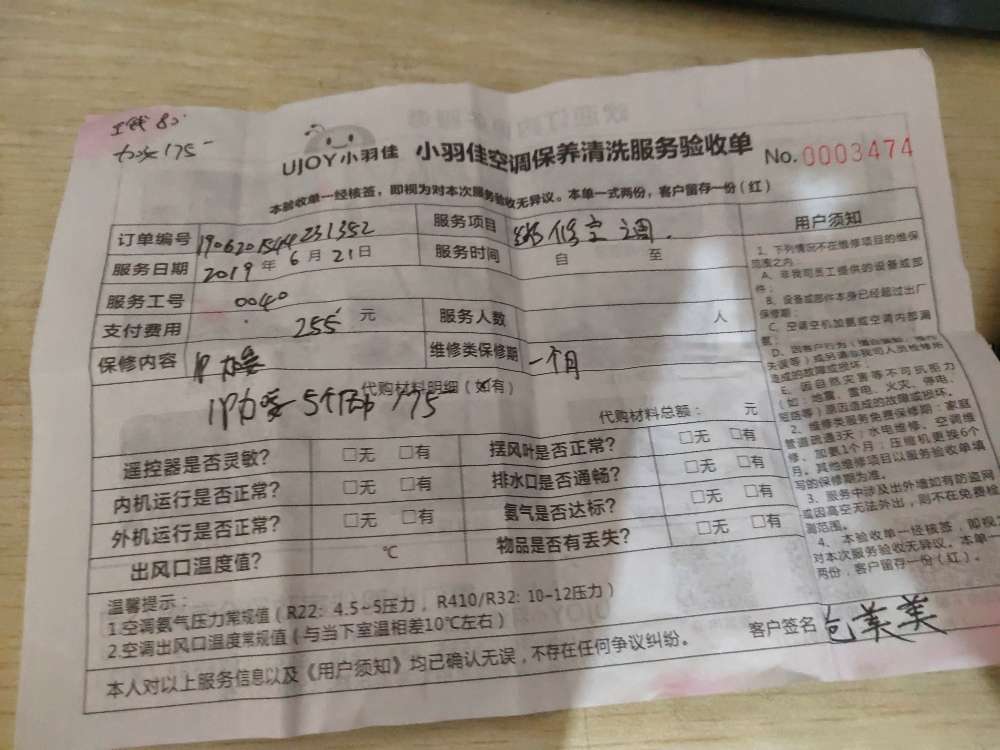 工钱 80
加安 175
UJOY小羽佳 小羽佳空调保养清洗服务验收单 No.0003474
本验收单一经核签，即视为对本次服务验收无异议。本单一式两份，客户留存一份（红）
订单编号 1906201544231352 服务项目 维修空调
服务日期 2019年6月21日 服务时间 自 至
服务工号 0040
支付费用 255 元 服务人数 人
保修内容 维修类保修期 一个月
代购材料明细（如有）
175
代购材料总额： 元
遥控器是否灵敏? □无 □有 摆风叶是否正常? □无 □有
内机运行是否正常? □无 □有 排水口是否通畅? □无 □有
外机运行是否正常? □无 □有 氨气是否达标? □无 □有
出风口温度值? ℃ 物品是否有丢失? □无 □有
温馨提示：
1.空调氨气压力常规值（R22：4.5~5压力，R410/R32: 10-12压力）
2.空调出风口温度常规值（与当下室温相差10℃左右）
本人对以上服务信息以及《用户须知》均已确认无误，不存在任何争议纠纷。
客户签名 包美美
用户须知
1、下列情况不在维修项目的维保
范围之内：
A、非我司员工提供的设备或部
件；
B、设备或部件本身已经超过出厂
保修期；
C、空调空机加氨或空调内部漏
氨；
D、因客户行为
失误等）或另请非我司人员检修所
造成的故障或损坏。
E、因自然灾害等不可抗拒力
（如：地震、雷电、火灾、停电、
短路等）原因造成的故障或损坏。
2、维修类服务免费保修期：家庭
管道疏通3天；水电维修、空调维
修、加氨1个月；压缩机更换6个
月。其他维修项目以服务验收单填
写的保修期为准。
3、服务中涉及出外墙如有防盗网
或因高空无法外出，则不在免费检
测范围。
4、本验收单一经核签，即视
对本次服务验收无异议。本单一
两份，客户留存一份（红）。